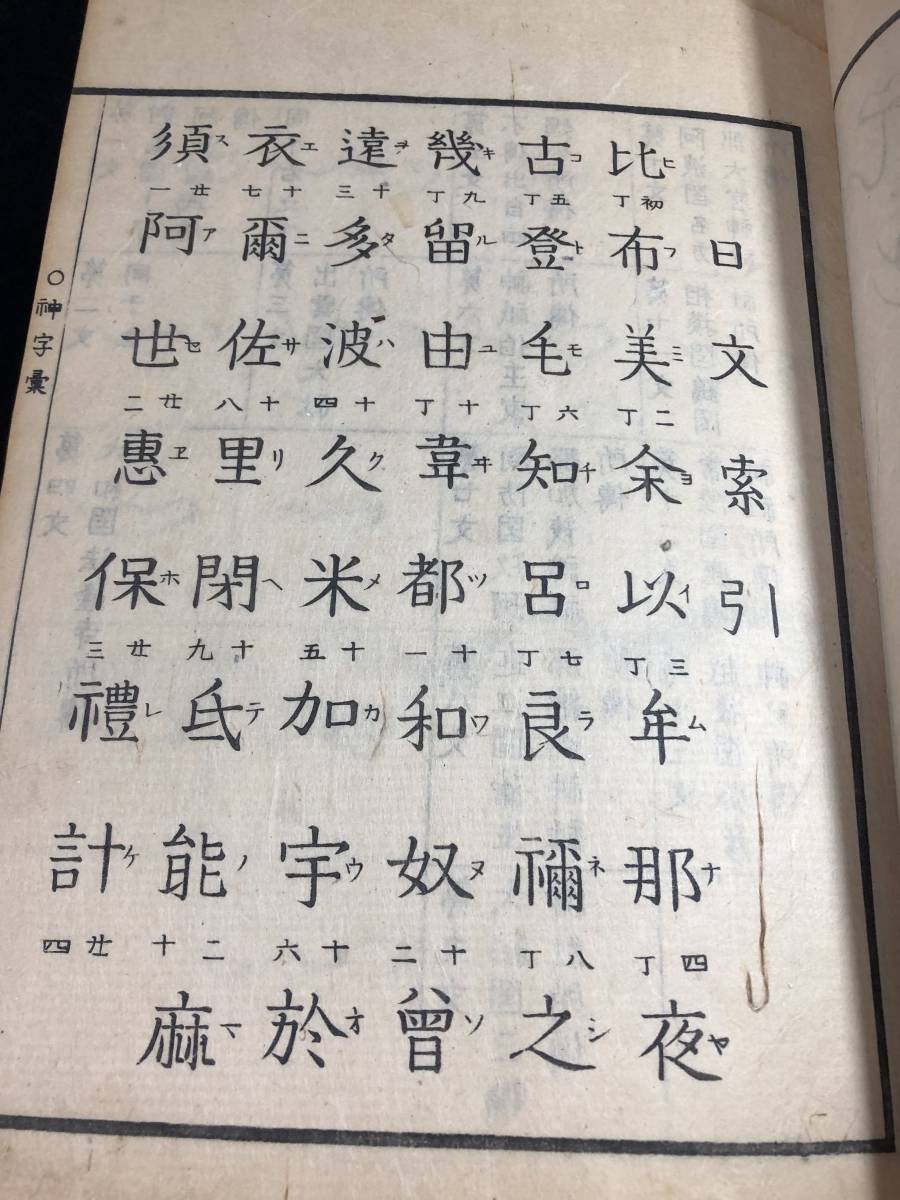 日文索引
比ヒ 初丁 布フ 美ミ 二丁 余ヨ 以イ 三丁 牟ム 那ナ 四丁 夜ヤ
古コ 五丁 登ト 毛モ 六丁 知チ 呂ロ 七丁 良ラ 禰ネ 八丁 之シ
幾キ 九丁 留ル 由ユ 十丁 韋ヰ 都ツ 十一 和ワ 奴ヌ 十二 曾ソ
遠ヲ 十三 多タ 波ハ 十四 久ク 米メ 十五 加カ 宇ウ 十六 於オ
衣エ 十七 爾ニ 佐サ 十八 里リ 閉ヘ 十九 氐テ 能ノ 二十 麻マ
須ス 廿一 阿ア 世セ 廿二 惠ヱ 保ホ 廿三 禮レ 計ケ 廿四
○神字彙